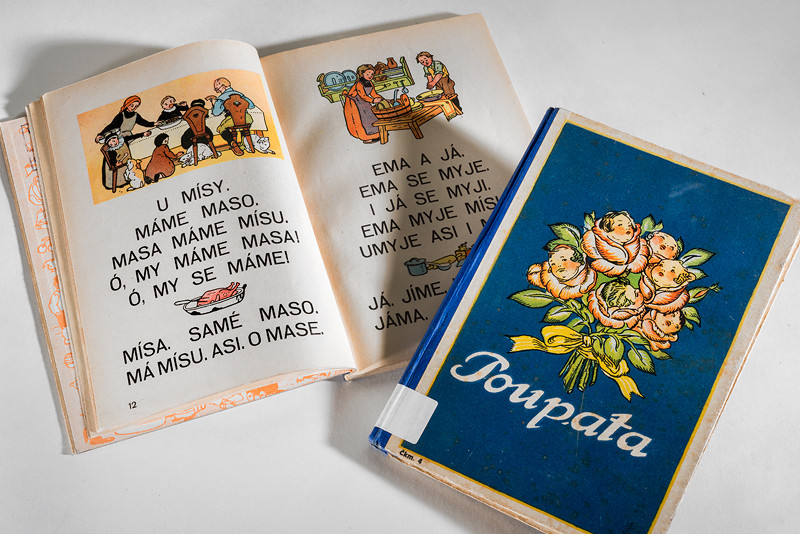 U MÍSY.
MÁME MASO.
MASA MÁME MÍSU.
Ó, MY MÁME MASA!
Ó, MY SE MÁME!
MÍSA. SAMÉ MASO.
MÁ MÍSU. ASI. O MASE.
12
EMA A JÁ.
EMA SE MYJE.
I JÁ SE MYJI.
EMA MYJE
UMYJE ASI I
JÁ. JÍME.
JÁMA.
Poupata
Čkm. 4